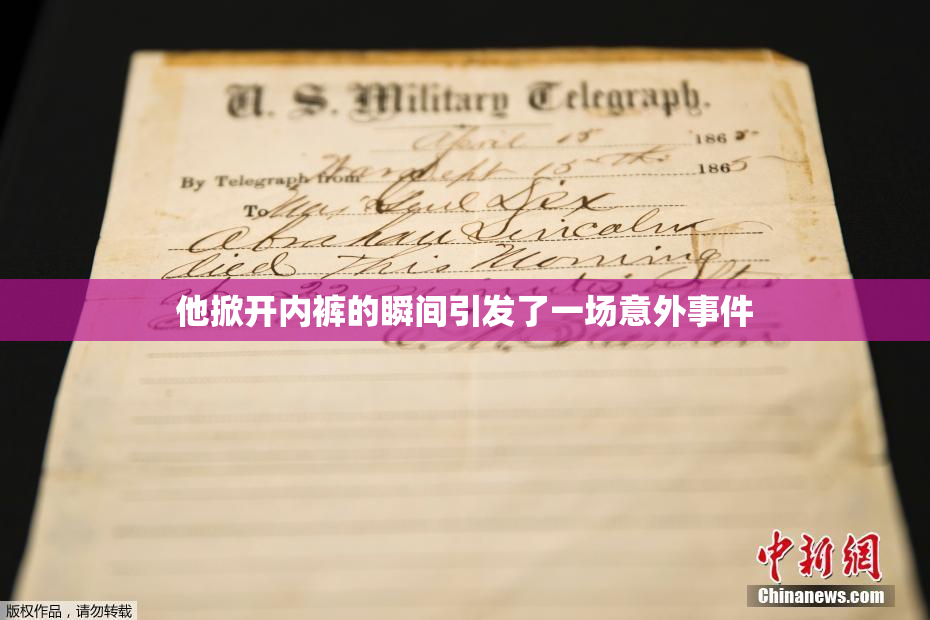 U. S. Military Telegraph.
April 15 1865
By Telegraph from War Dept 15th 1865
To Maj Genl Dix
Abraham Lincoln
died This Morning
at 22 minutes after
他掀开内裤的瞬间引发了一场意外事件
E. M. Stanton
中新网
Chinanews.com
版权作品，请勿转载